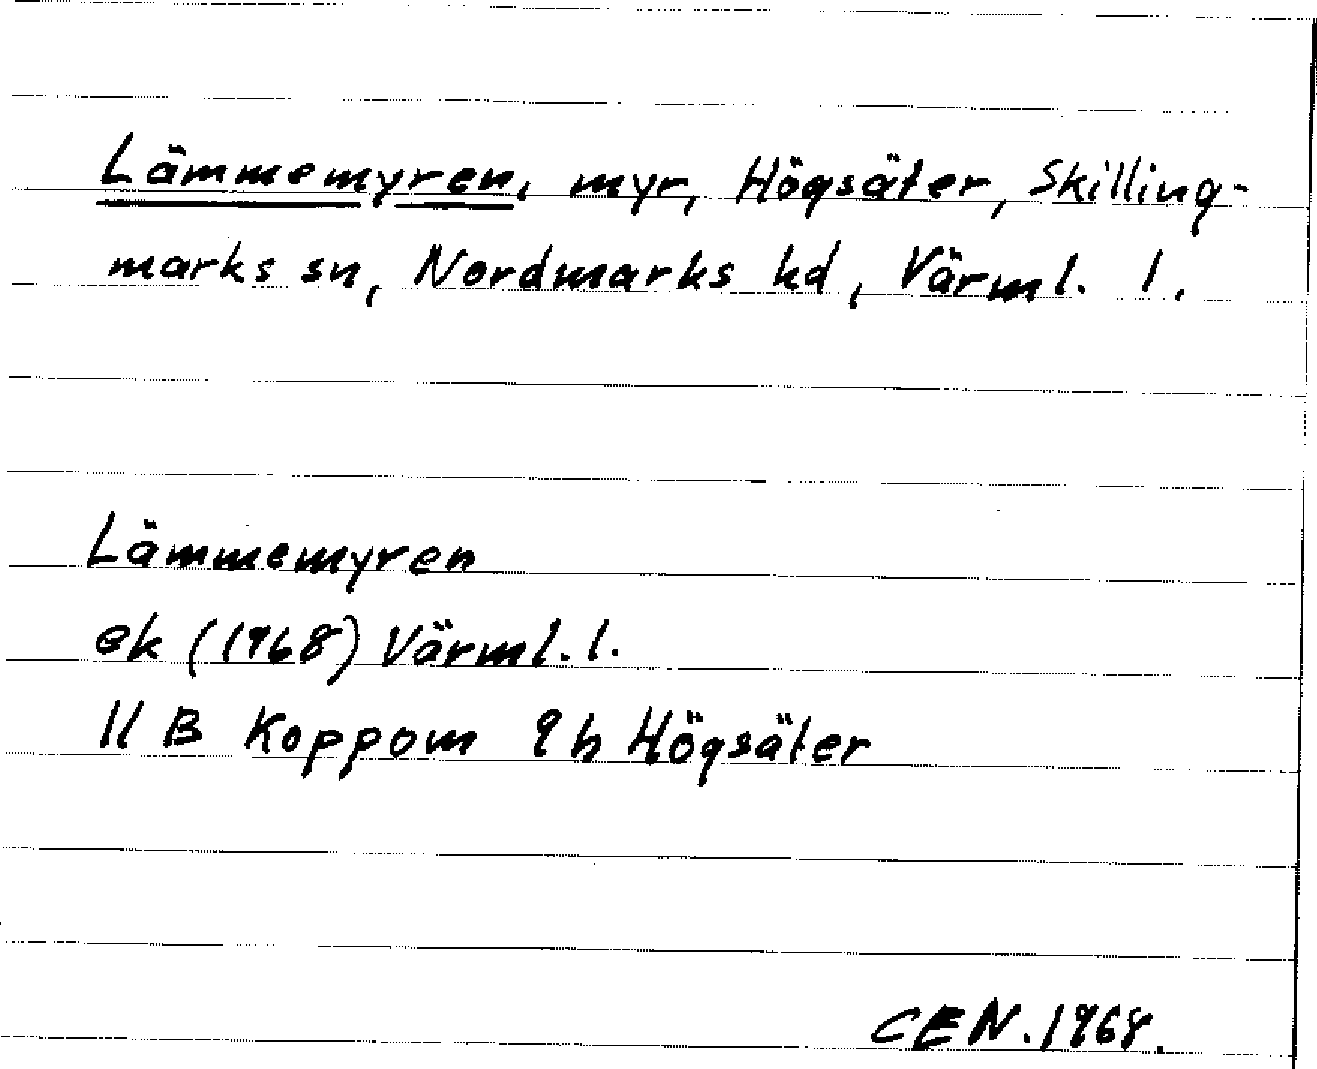 Lämmemyren, myr, Högsäter, Skilling-
marks sn, Nordmarks hd, Värml. l.
Lämmemyren
ek (1968) Värml. l.
11 B Koppom 9 h Högsäter
CEN. 1968.